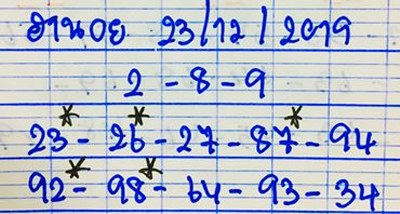 ฮานอย 23/12/2019
2 - 8 - 9
23* - 26* - 27 - 87* - 94
92* - 98* - 64 - 93 - 34